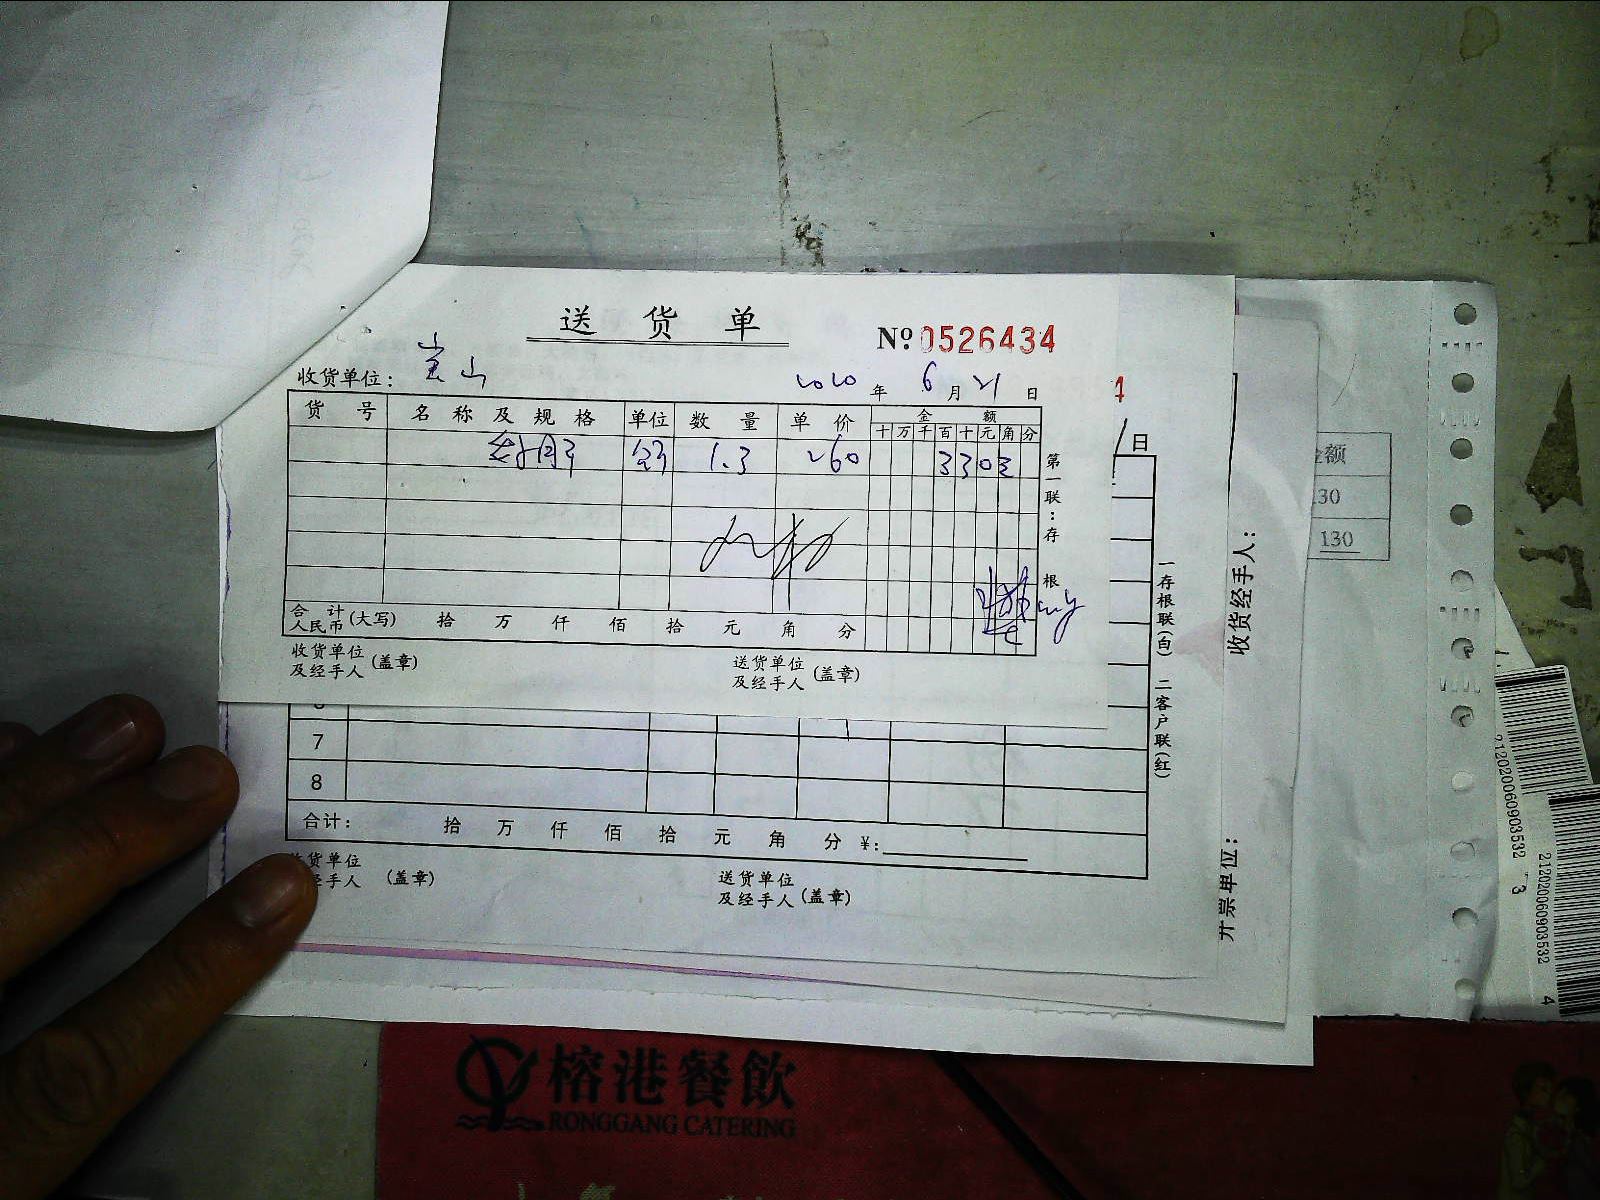 送 货 单
№ 0526434
收货单位: 宝山 2020 年 6 月 21 日
货 号 名 称 及 规 格 单位 数 量 单 价 金 额
十 万 千 百 十 元 角 分
1.3 260 330
第一联:存根
合 计 人民币 (大写) 拾 万 仟 佰 拾 元 角 分
收货单位及经手人 (盖章) 送货单位及经手人 (盖章)
日
7
8
合计: 拾 万 仟 佰 拾 元 角 分 ¥:
收货单位
经手人 (盖章) 送货单位及经手人 (盖章)
一存根联(白) 二客户联(红)
收货经手人:
开票单位:
金额
130
130
2120200609035323
2120200609035324
榕港餐飲
RONGGANG CATERING